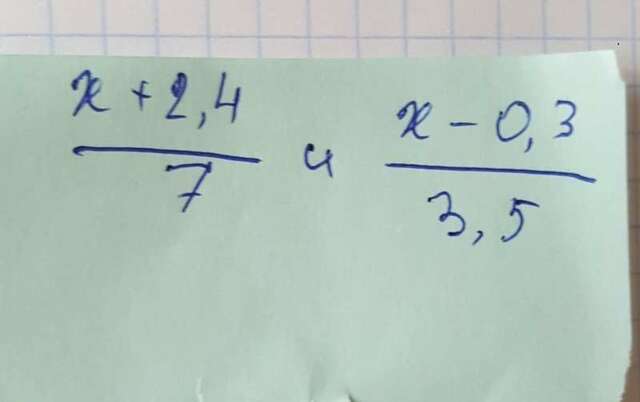 x + 2,4 / 7 и x - 0,3 / 3,5